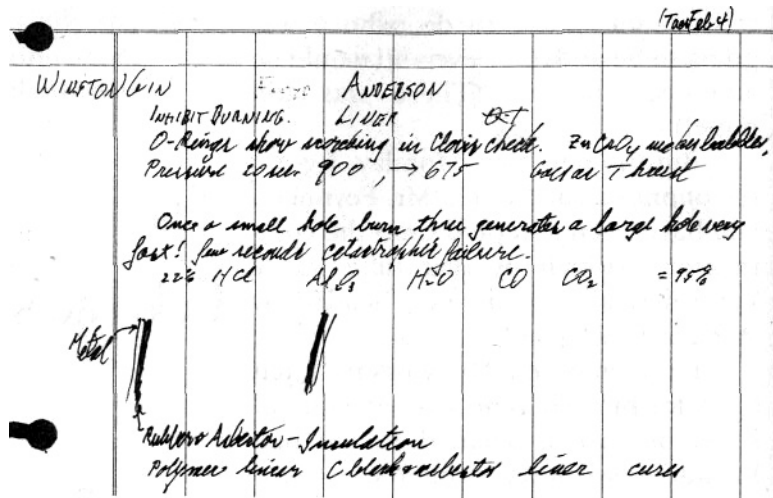 (Tues Feb. 4)
WINSTON GIN ANDERSON
INHIBIT BURNING. LINER
O-Rings show scorching in Clovis check. ZnCrO4 makes bubbles,
Pressure 20 sec. 900, → 675 Gas as Thrust
Once a small hole burn thru generates a large hole very
fast! few seconds catastrophic failure.
22% HCl Al2O3 H2O CO CO2 = 95%
Metal
Rubber & Asbestos - Insulation
Polymer liner C black & asbestos liner cures